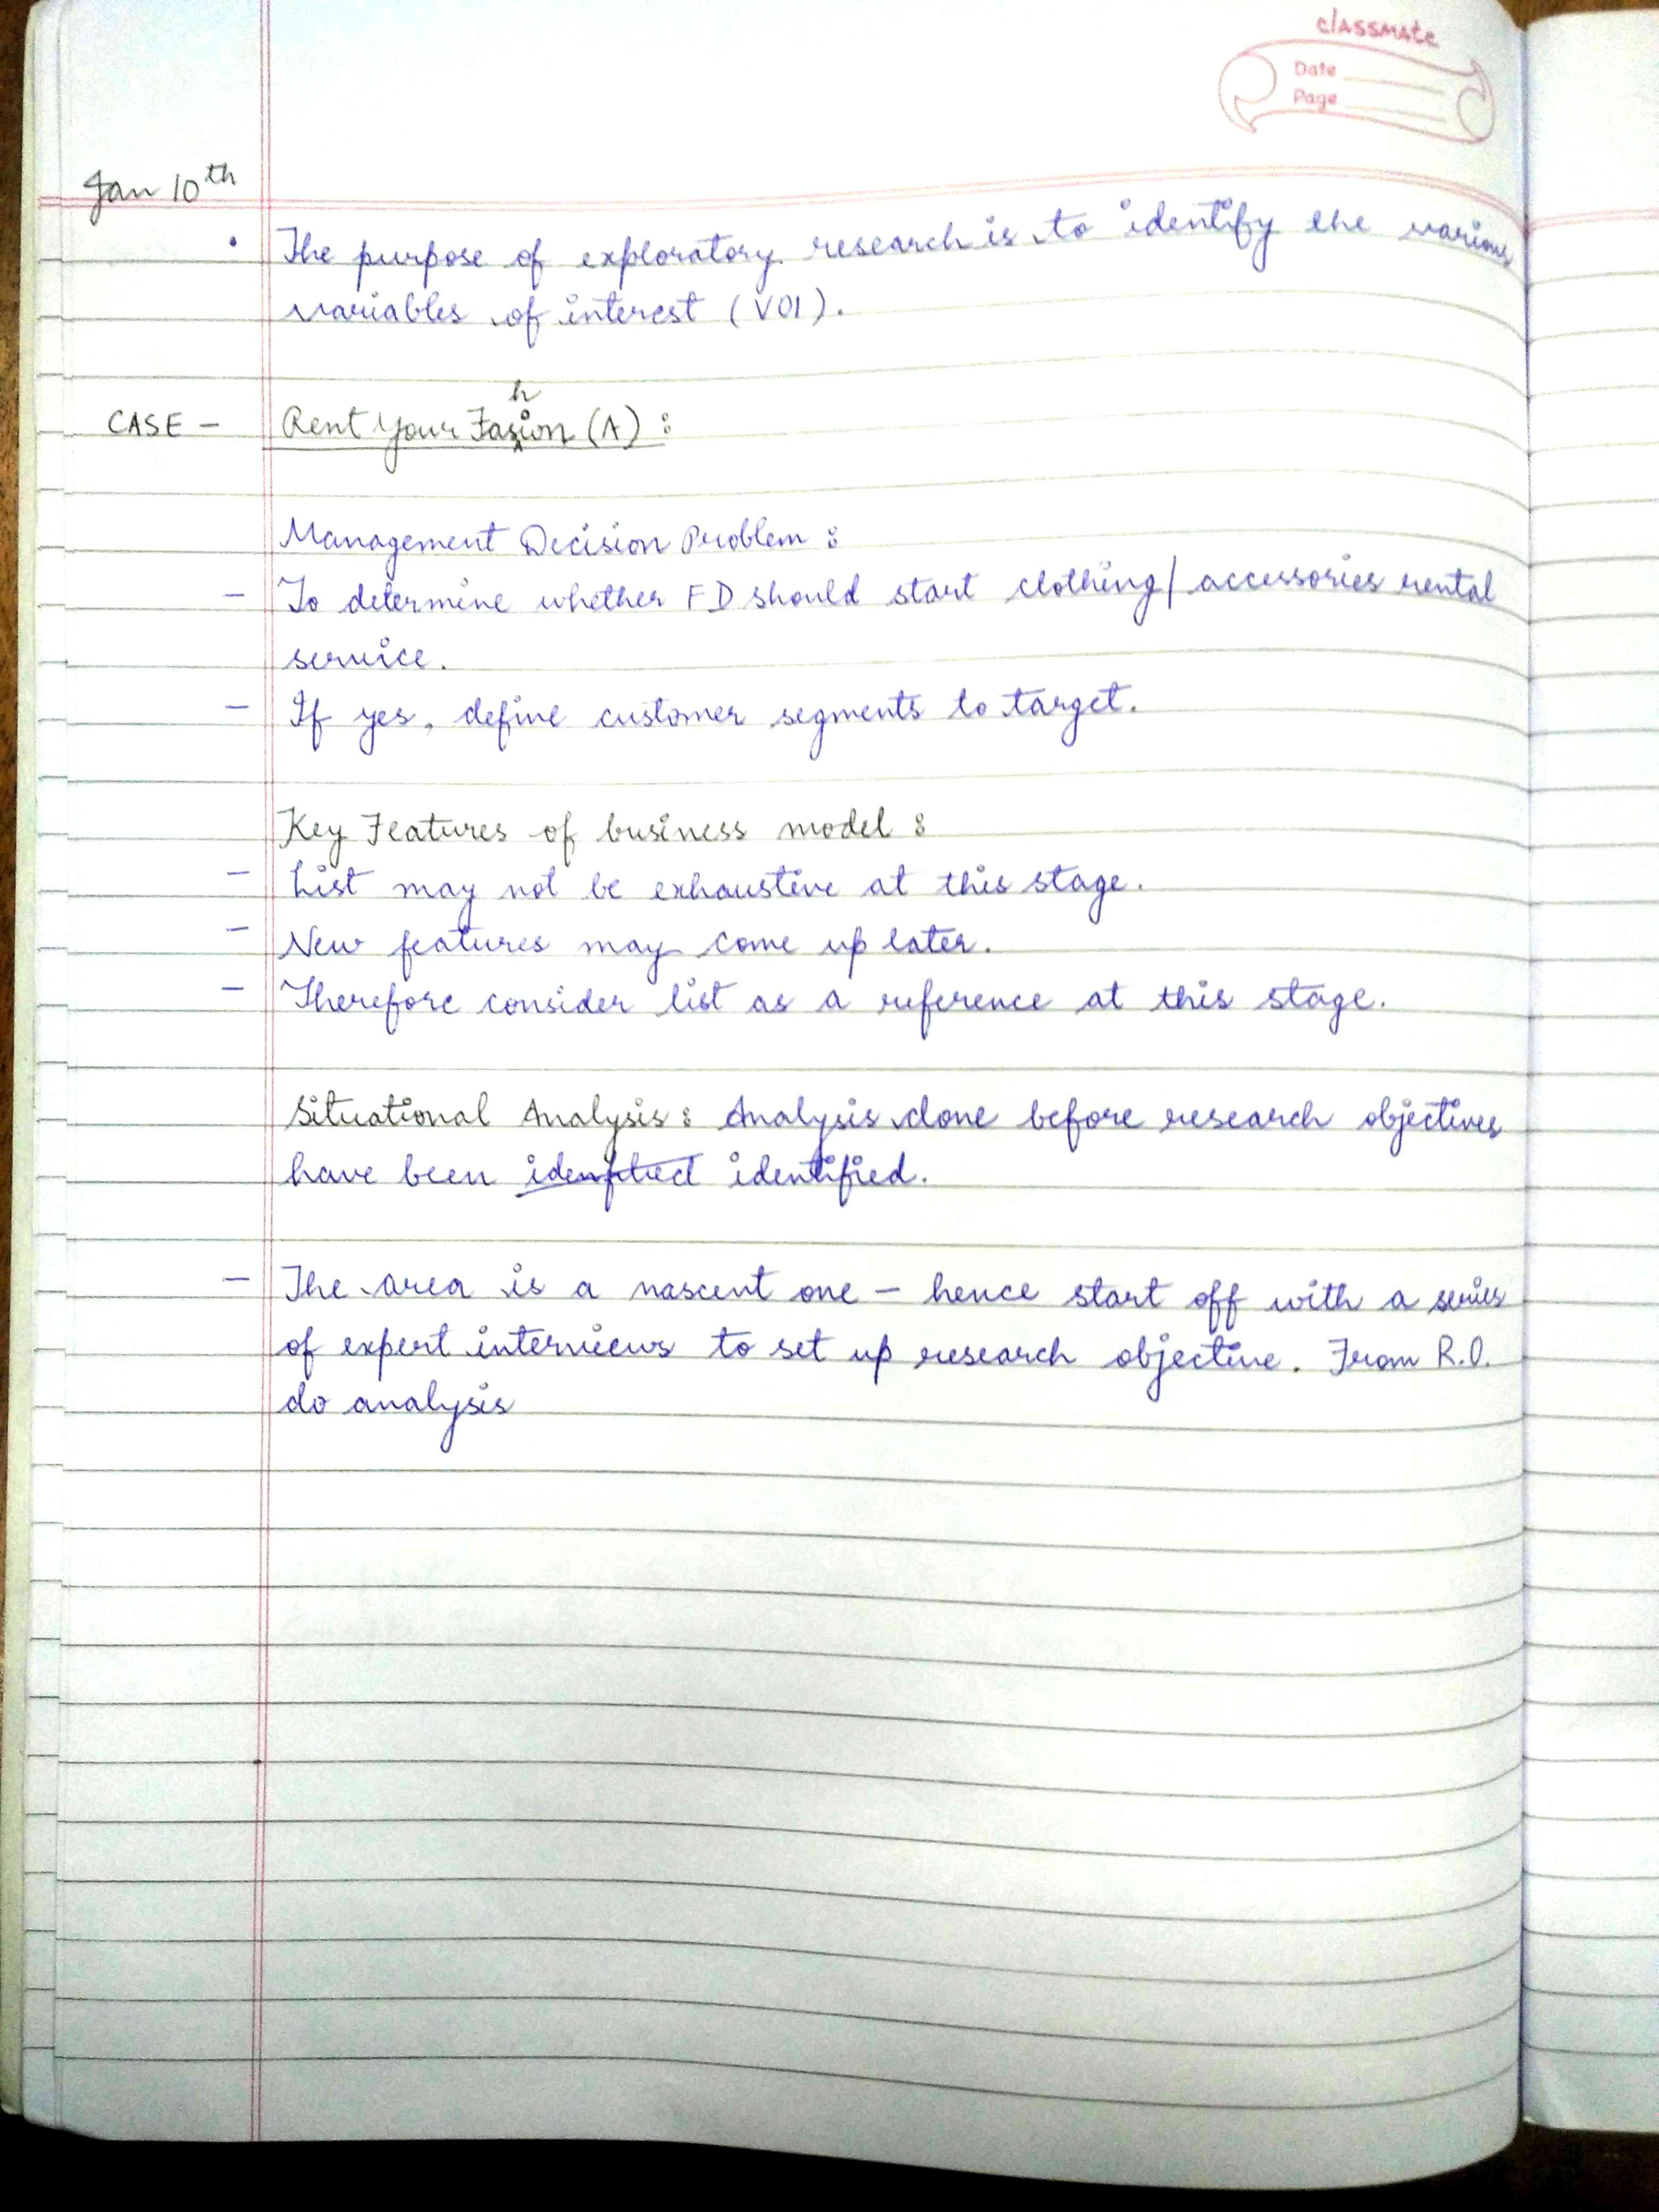 classmate
Date
Page
Jan 10th
• The purpose of exploratory research is to identify the various
variables of interest (VOI).
CASE - Rent Your Fashion (A) :
Management Decision Problem :
- To determine whether FD should start clothing/accessories rental
service.
- If yes, define customer segments to target.
Key Features of business model :
- List may not be exhaustive at this stage.
- New features may come up later.
- Therefore consider list as a reference at this stage.
Situational Analysis : Analysis done before research objectives
have been identified.
- The area is a nascent one - hence start off with a series
of expert interviews to set up research objective. From R.O.
do analysis